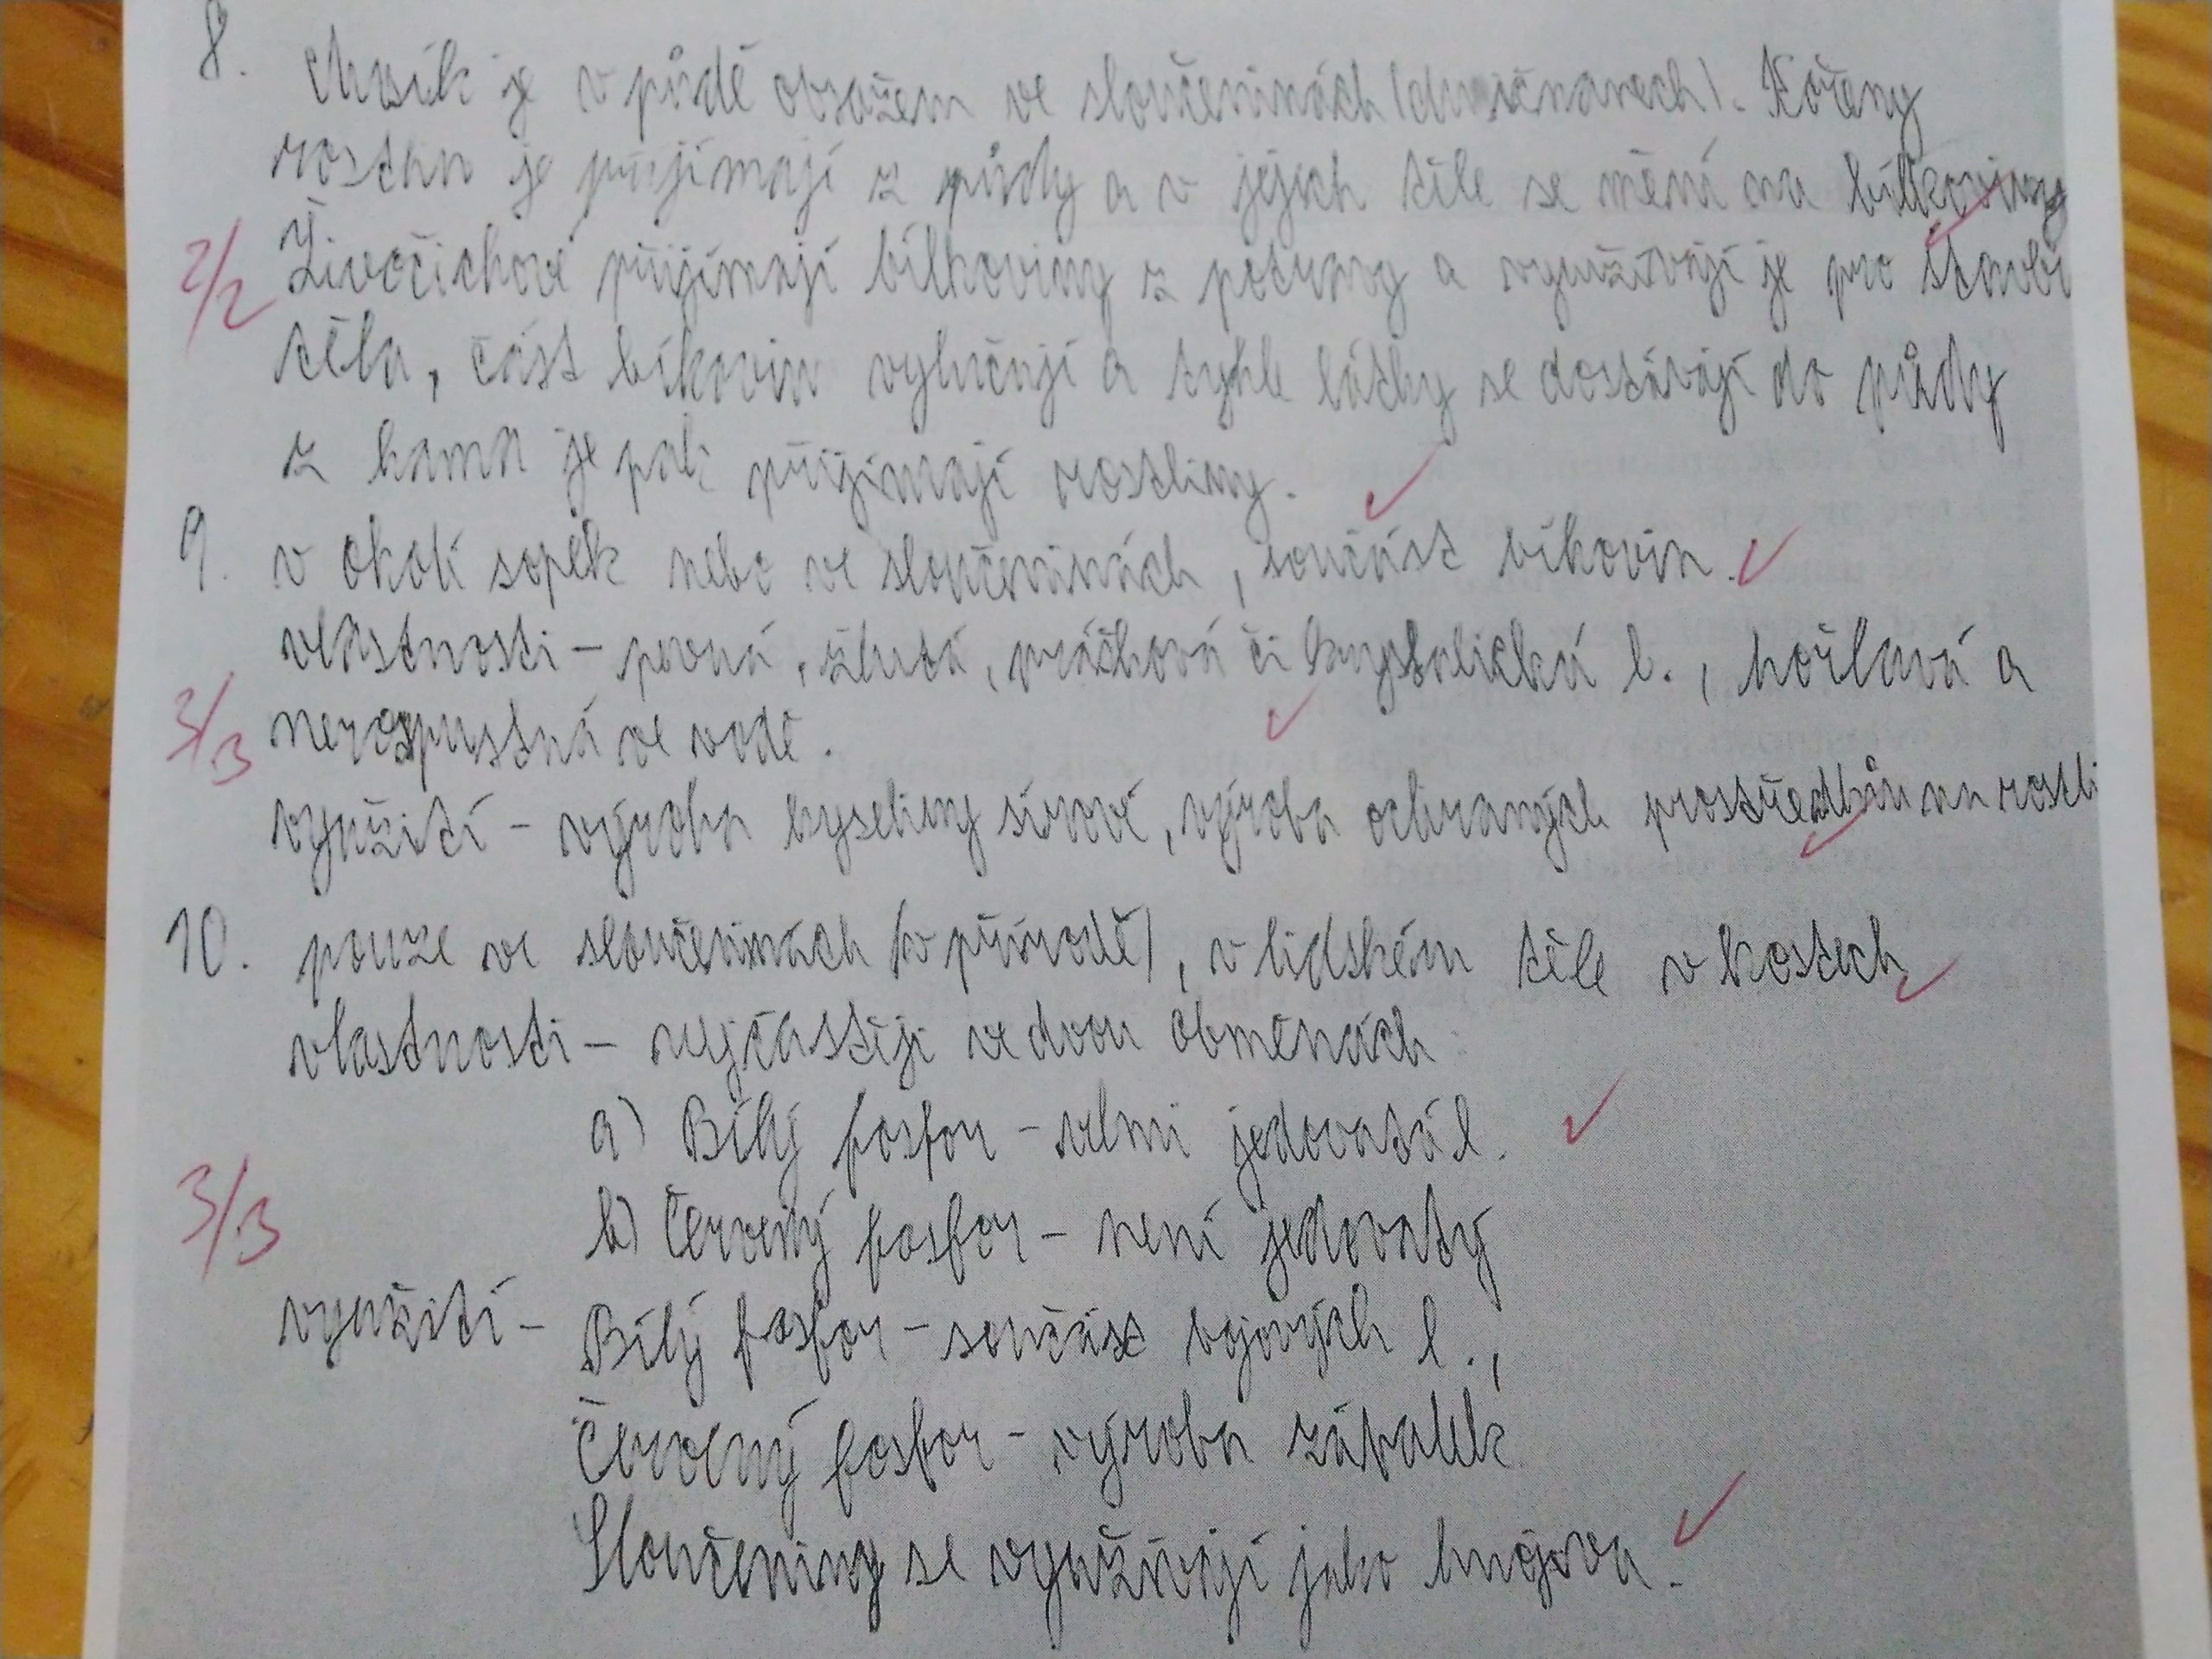 8. Dusík je v půdě obsažem ve sloučeninách (dusičnanech). Kořeny
rostlin je přijímají z půdy a v jejich těle se mění na bílkoviny
2/2 Živočichové přijímají bílkoviny z potravy a využívají je pro stavbu
těla, část bíkovin vylučují a tyhle látky se dostávají do půdy
z kama je pak přijímají rostliny.
9. v okolí sopek nebo ve sloučeninách, součást bíkovin.
vlastnosti - pevná, žlutá, prášková či krystalická l., hořlavá a
3/3 nerozpustná ve vodě.
využití - výroba kyseliny sírové, výroba ochraných prostředků na rostli
10. pouze ve sloučeninách (v přírodě), v lidském těle v kostech
vlastnosti - nejčastěji ve dvou obměnách
a) Bílý fosfor - velmi jedovatá l.
3/3
b) červený fosfor - není jedovatý
využití - Bílý fosfor - součást bojových l.,
červený fosfor - výroba zápalek
Sloučeniny se využívají jako hnojiva.